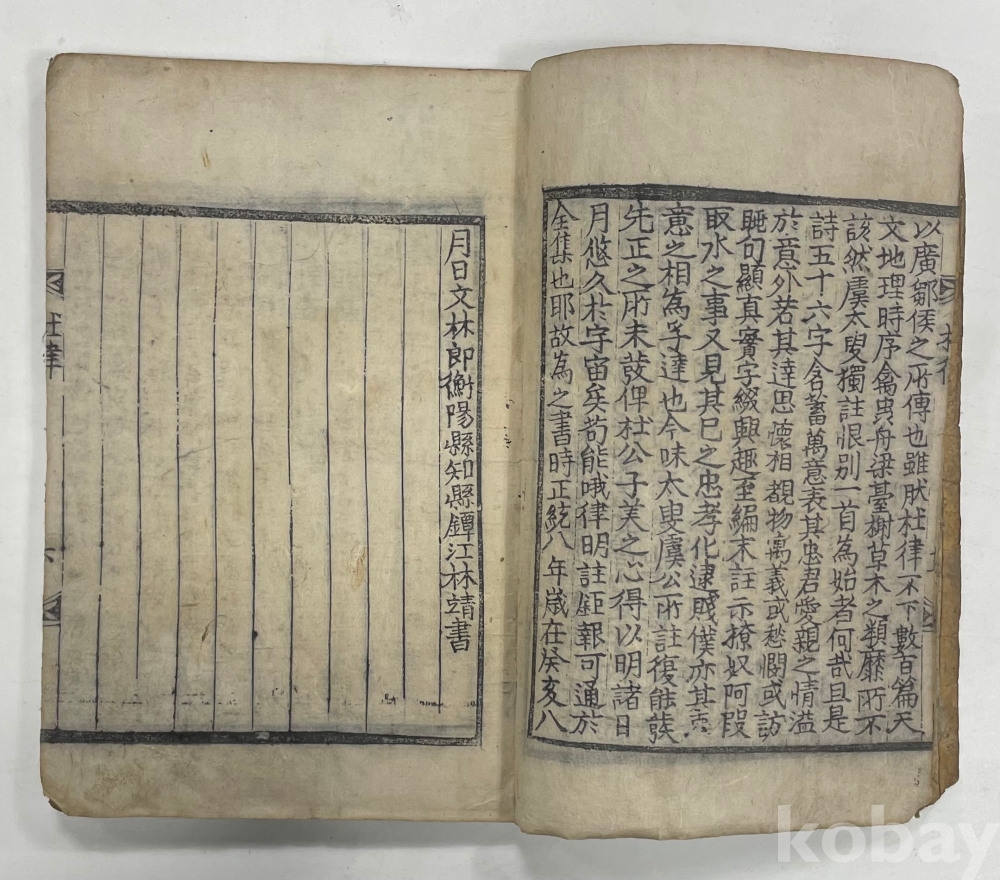 以廣鄒侯之所傳也雖肰杜律不下數百篇天
文地理時序禽虫舟梁臺榭草木之類靡所不
該然虞太叟獨註恨别一首為始者何㢤且是
詩五十六字含蓄萬意表其忠君愛親之情溢
於意外若其達思懷相覩物寓義或愁悶或訪
眺句顯真實字綴興趣至編末註示獠奴阿段
取水之事又見其巳之忠孝化逮賤僕亦其
意之相為孚達也今味太叟虞公所註復能發
先正之所未發俾杜公子美之心得以明諸日
月悠久扵宇宙矣苟能哦律明註鉅報可通於
全集也耶故為之書時正統八年歳在癸亥八
月日文林郎衡陽縣知縣鐔江林靖書
杜律
六
杜律
kobay